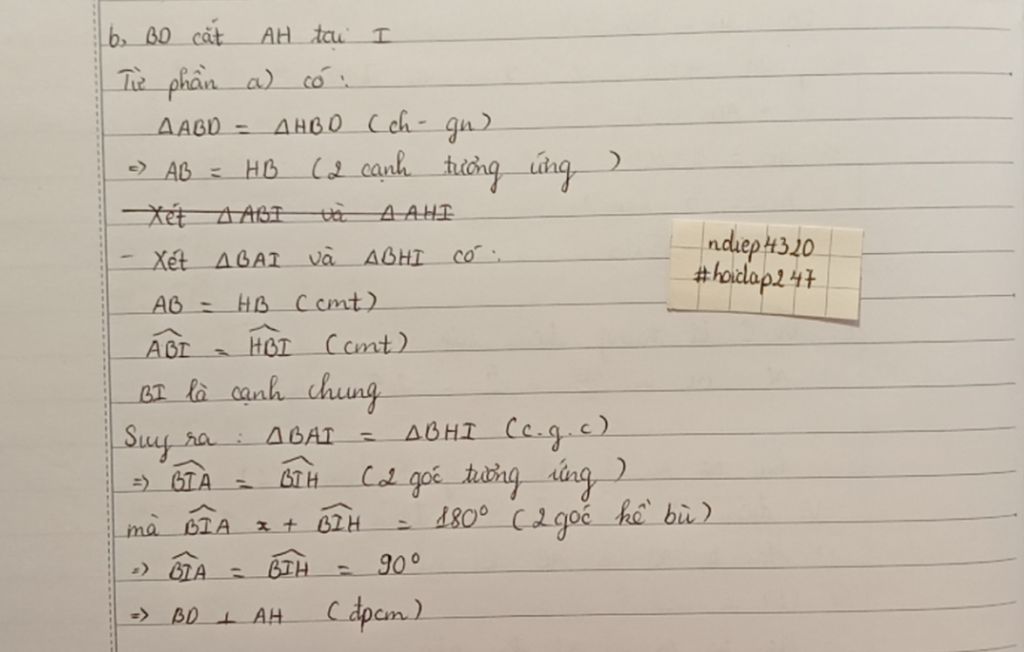 b, BD cắt AH tại I
Từ phần a) có:
ΔABD = ΔHBD (ch - gn)
=> AB = HB (2 cạnh tương ứng)
Xét ΔABI và ΔAHI
- Xét ΔBAI và ΔBHI có:
ndiep4320
#hoidap247
AB = HB (cmt)
\widehat{ABI} = \widehat{HBI} (cmt)
BI là cạnh chung
Suy ra : ΔBAI = ΔBHI (c.g.c)
=> \widehat{BIA} = \widehat{BIH} (2 góc tương ứng)
mà \widehat{BIA} x + \widehat{BIH} = 180° (2 góc kề bù)
=> \widehat{BIA} = \widehat{BIH} = 90°
=> BD ⊥ AH (đpcm)